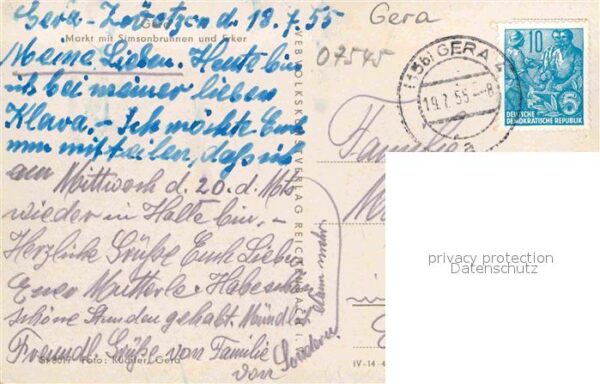 Gera - Zwötzen d. 18.7.55
Gera
Markt mit Simsonbrunnen und Erker
Meine Lieben. Heute bin
ich bei meiner lieben
Klara. - Ich möchte Euch
nun mitteilen, daß ich
am Mittwoch d. 20. d. Mts
wieder in Halle bin. -
Herzliche Grüße Euch Lieben
Euer Mutterle. Habe schon
schöne Stunden gehabt. Mündlich
dann mehr
Freundl. Grüße von Familie
von Sondern
Foto: Kuchler, Gera
VEB VOLKSKUNSTVERLAG REICHENBACH I. V.
Gera
07545
(15b) GERA 4
19.7.55-8
a
10
DEUTSCHE
DEMOKRATISCHE REPUBLIK
Familie
IV-14-4
privacy protection
Datenschutz